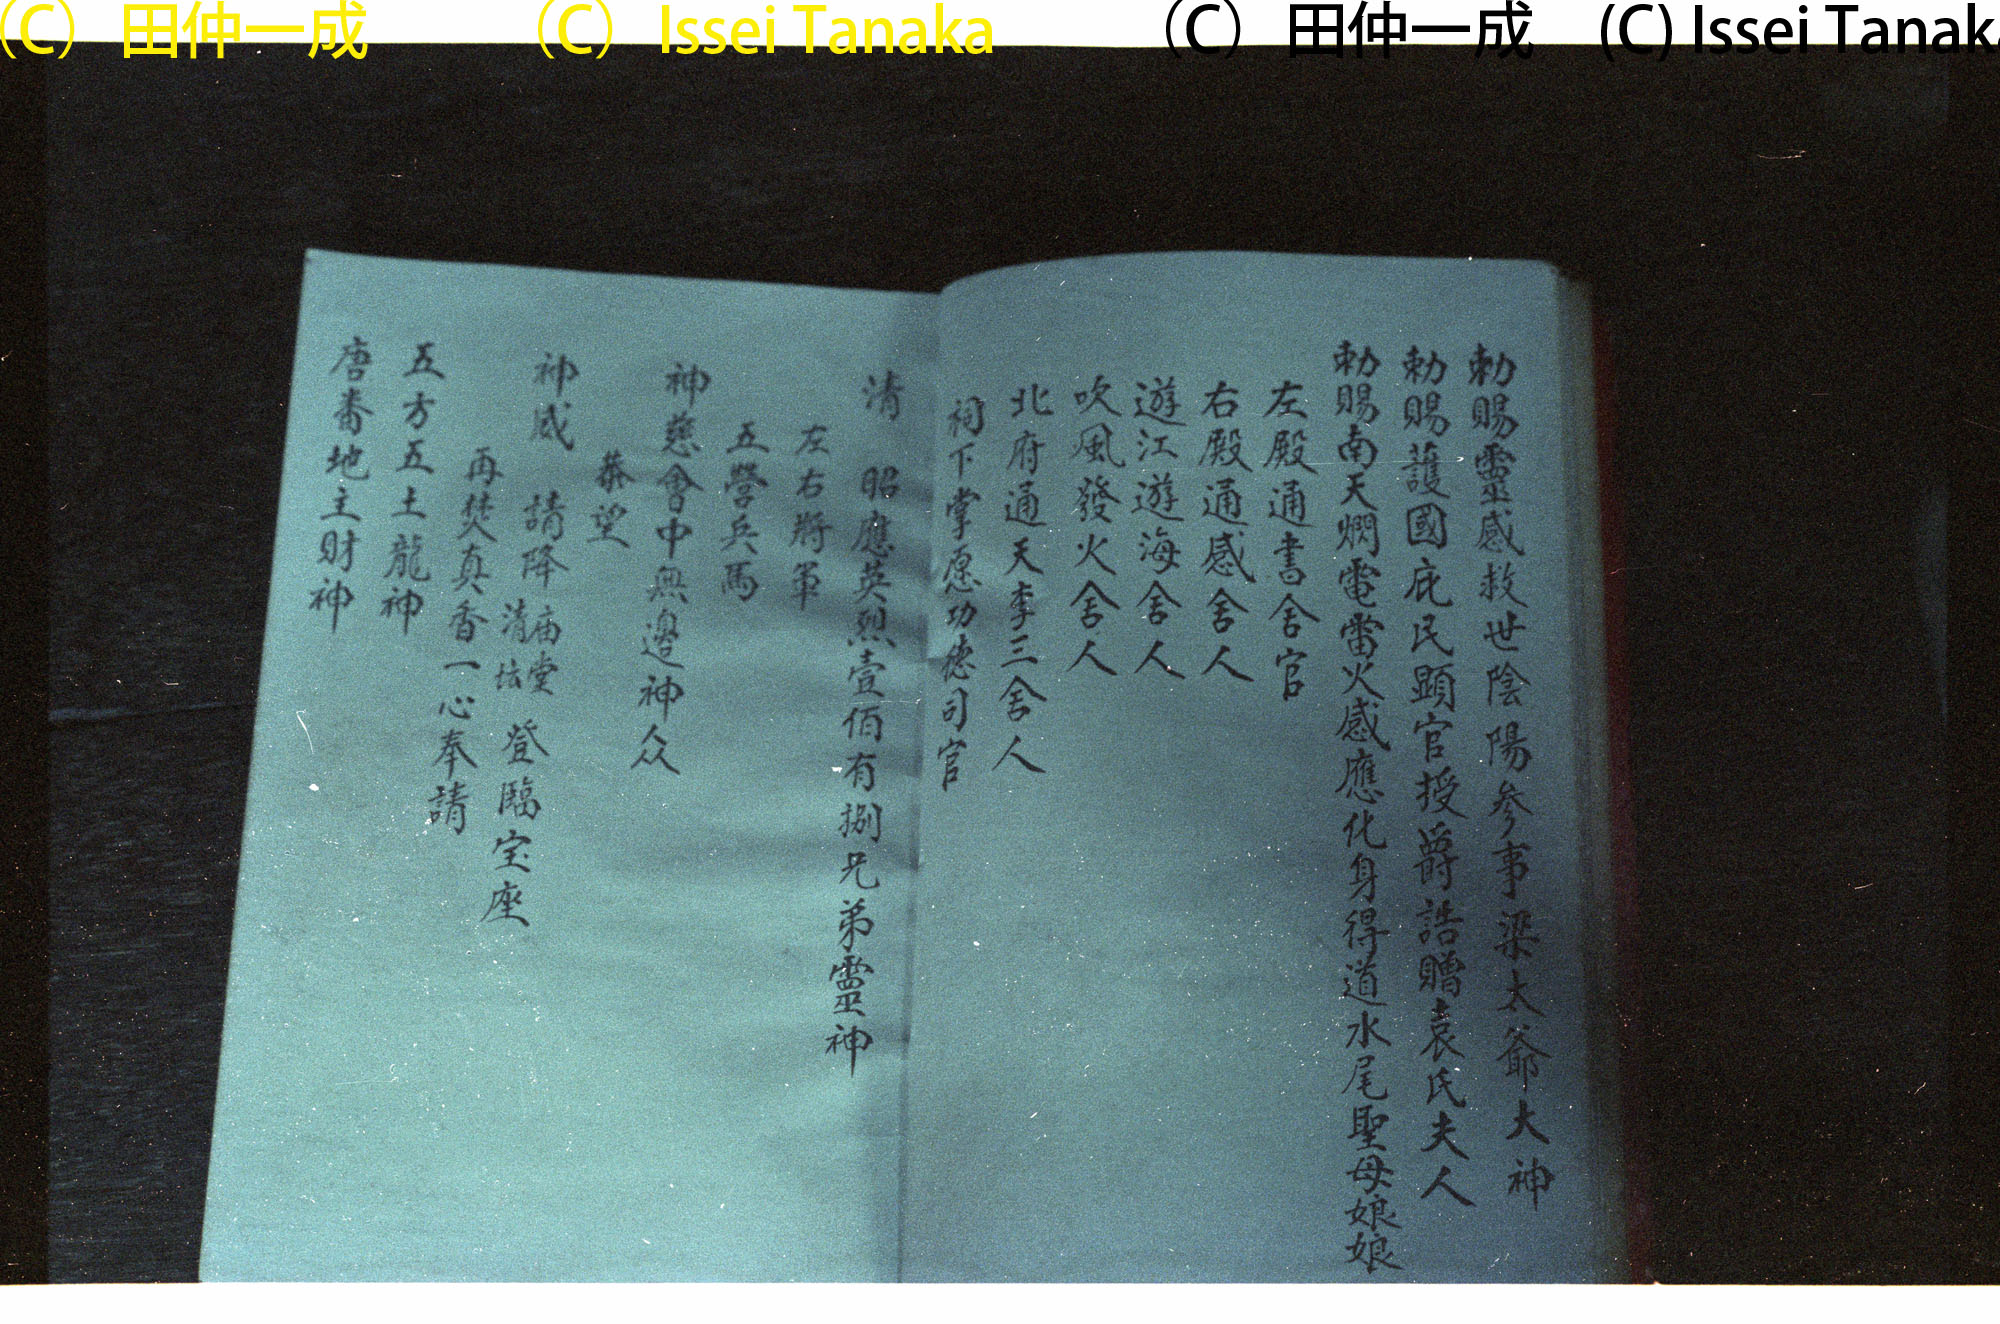 （C） 田仲一成 （C） Issei Tanaka （C） 田仲一成 (C) Issei Tanaka
勅賜靈感救世陰陽参事梁太爺大神
勅賜護國庇民顕官授爵誥贈袁氏夫人
勅賜南天爓電雷火感應化身得道水尾聖母娘娘
左殿通書舍官
右殿通感舍人
遊江遊海舍人
吹風發火舍人
北府通天李三舍人
祠下掌愿功德司官
清 昭應英烈壹佰有捌兄弟靈神
左右將軍
五營兵馬
神慈會中無邊神众
恭望
神威 請降 庙堂 清坛 登臨宝座
再焚真香一心奉請
五方五土龍神
唐番地主財神